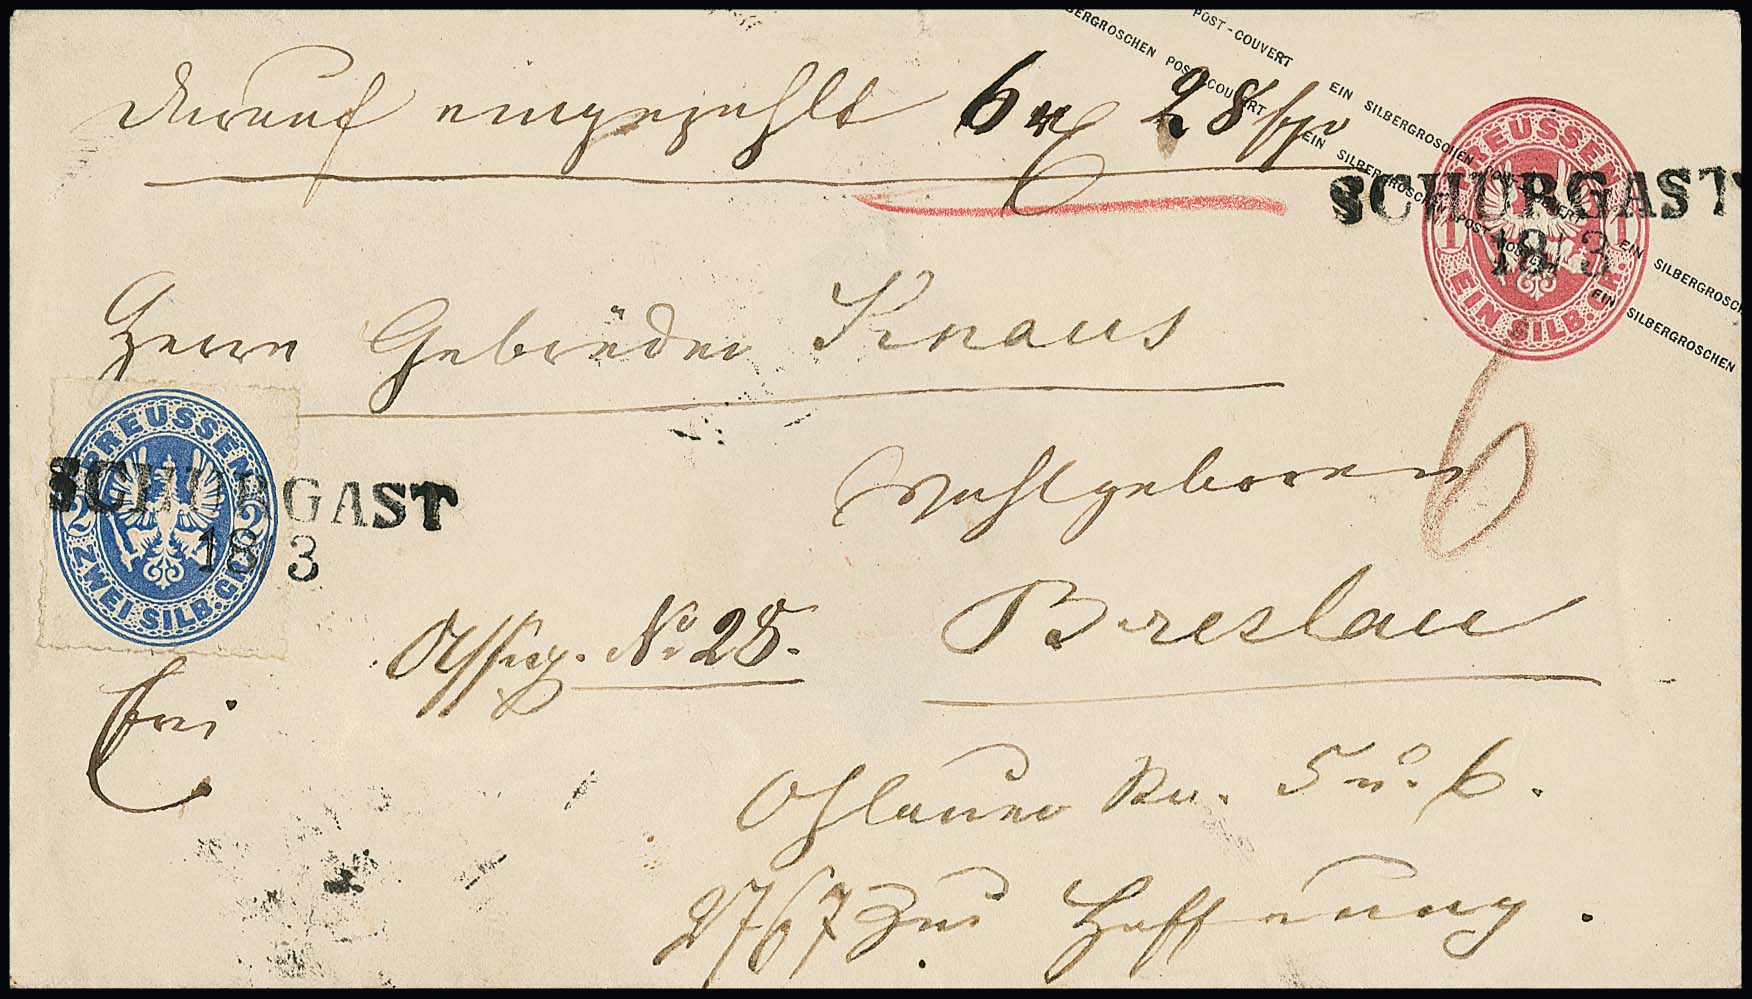 POST-COUVERT EIN SILBERGROSCHEN POST-COUVERT EIN
BERGROSCHEN POST-COUVERT EIN SILBERGROSCHEN POST-COUVERT EIN SILBERGROSCHEN
Darauf eingezahlt 6 28 Sgr
PREUSSEN
1 1
EIN SILB. GR.
SCHURGAST
18/3
Herrn Gebrüder Knaus
PREUSSEN
2 2
ZWEI SILB. GR.
SCHURGAST
18/3
6
Wohlgeboren
Breslau
No 28.
frei
Ohlauer 5 u. 6.
zur Hoffnung.